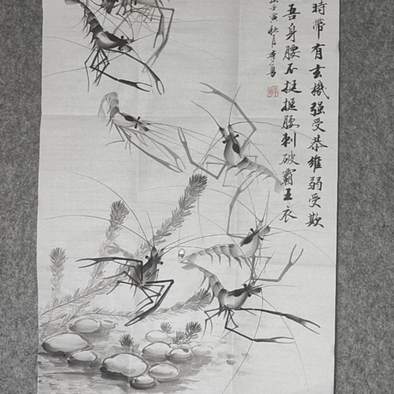 時帶有玄機强受恭維弱受欺
吾身腰不挺挺腰刺破霸王衣
寅秋月